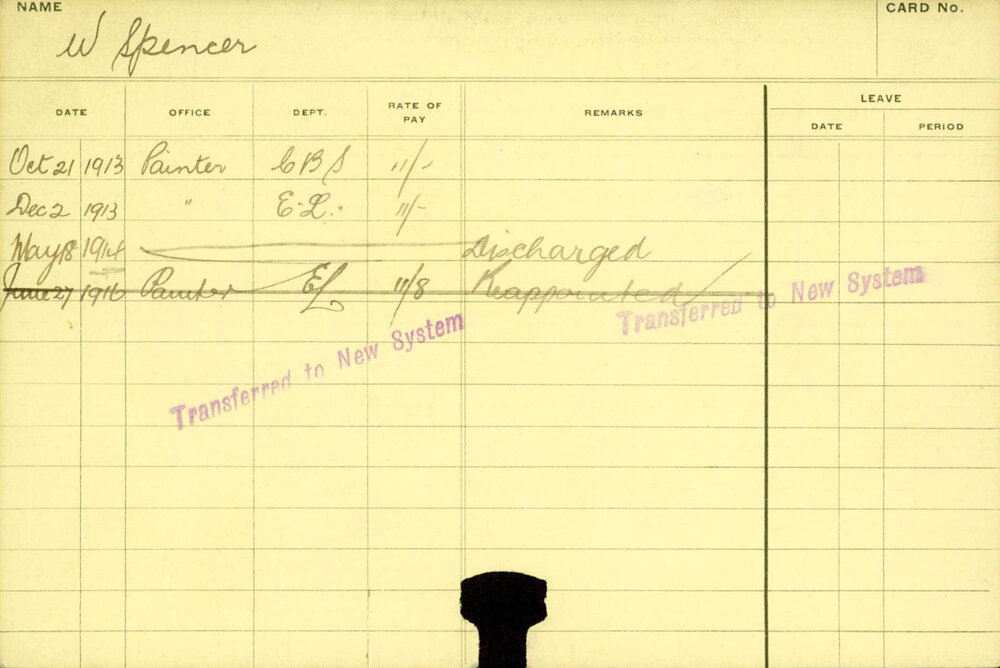 NAME
CARD No.
W Spencer
DATE OFFICE DEPT. RATE OF PAY REMARKS LEAVE
DATE PERIOD
Oct 21 1913 Painter C B S 11/-
Dec 2 1913 " E. L. 11/-
May 18 1914 Discharged
June 27 1916 Painter EL 11/8 Reappointed
Transferred to New System
Transferred to New System